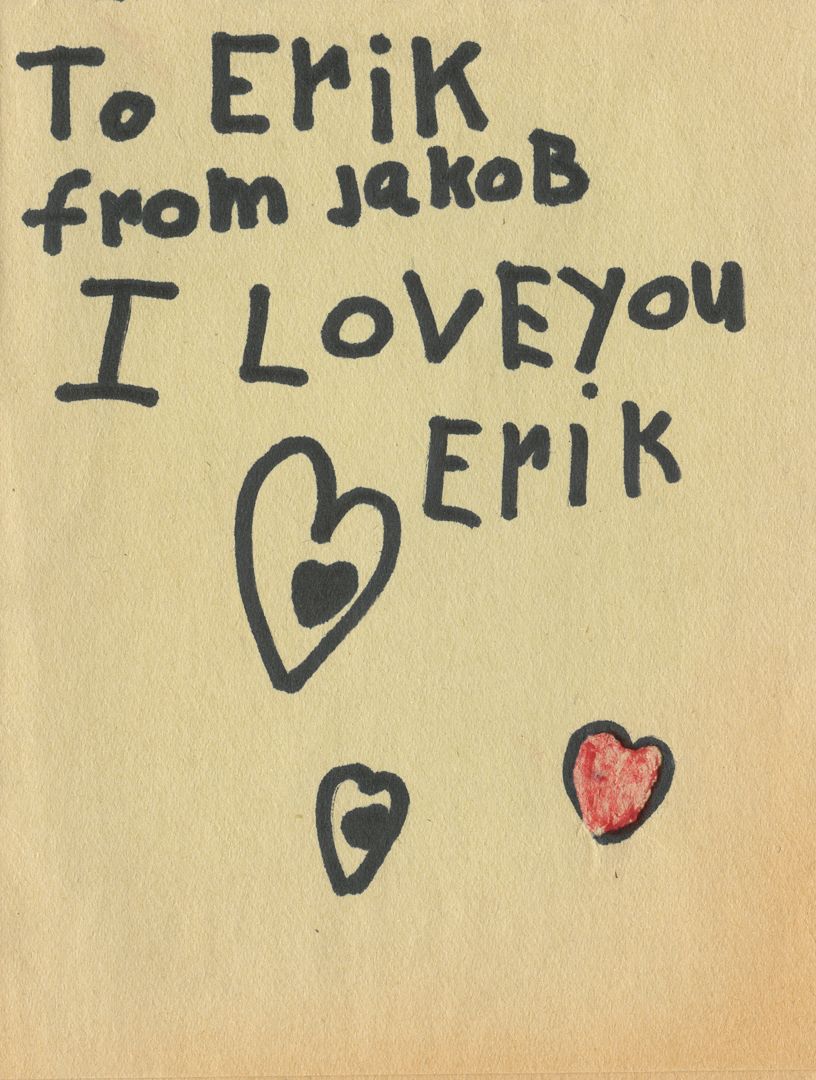 To Erik
from jakoB
I LOVEyou
Erik